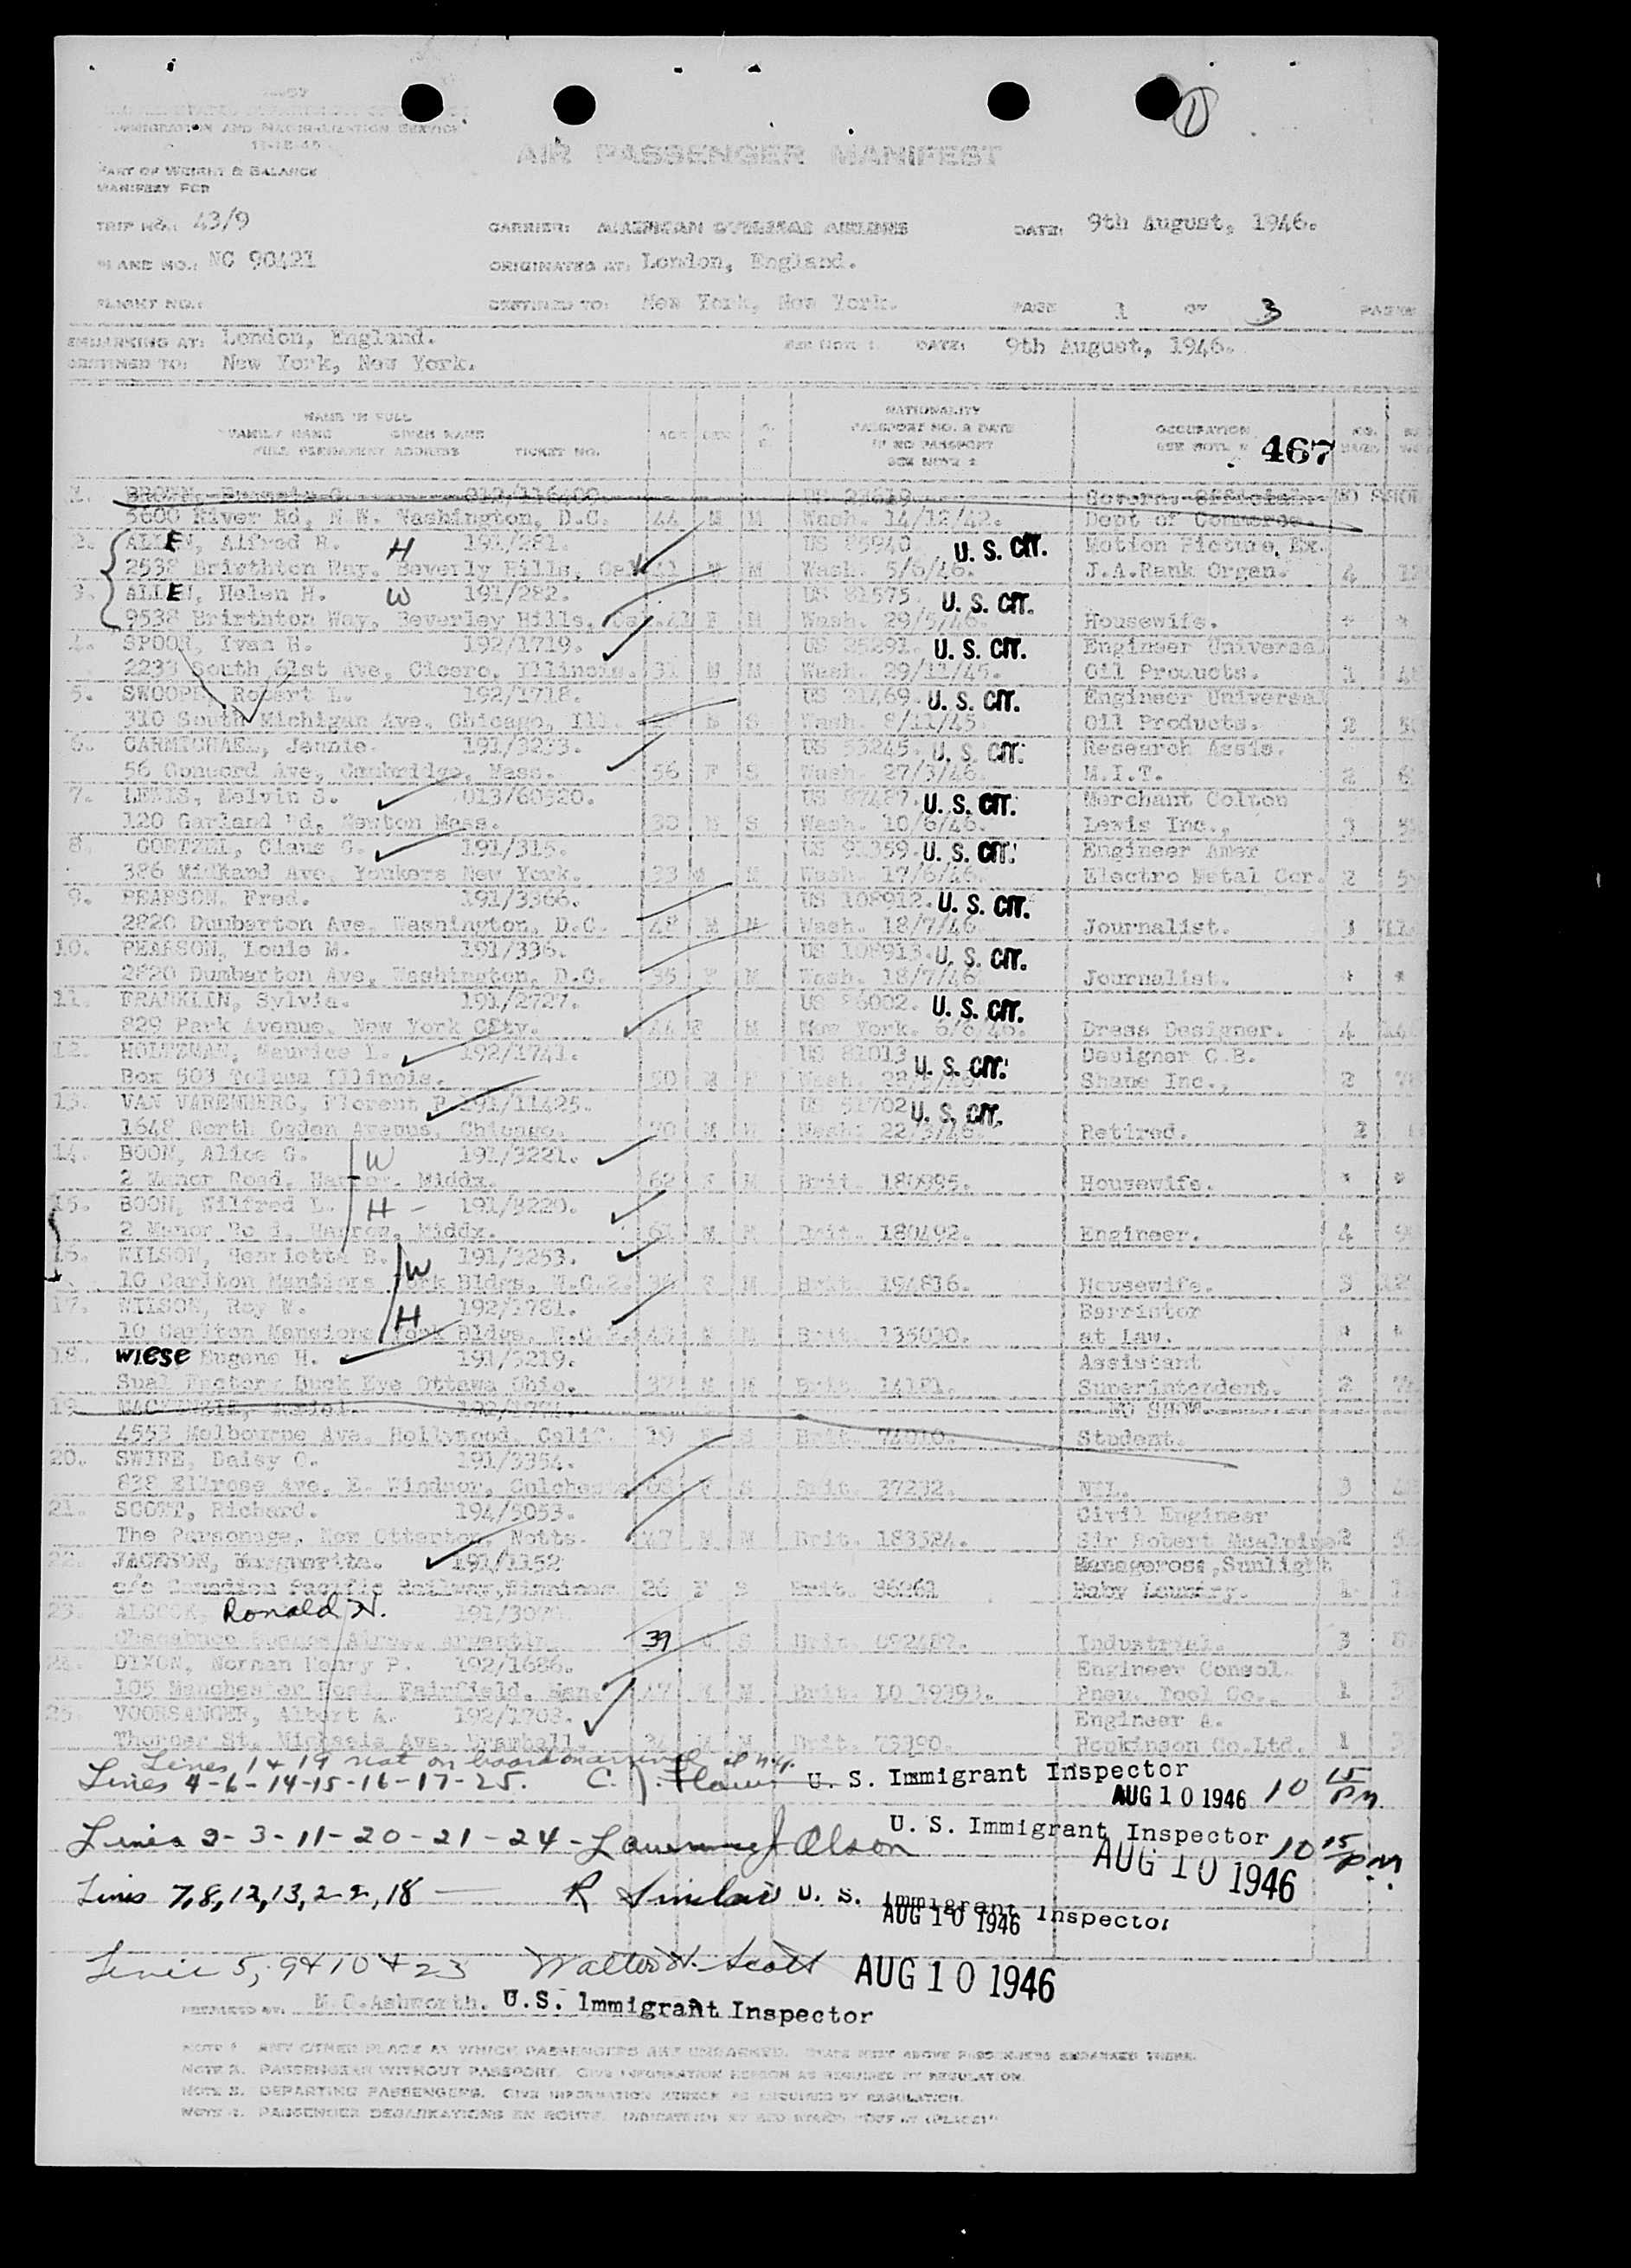 1
IMMIGRATION AND NATURALIZATION SERVICE
AIR PASSENGER MANIFEST
PART OF WEIGHT & BALANCE
MANIFEST FOR
TRIP NO.: 43/9 CARRIER: AMERICAN OVERSEAS AIRLINES DATE: 9th August, 1946.
PLANE NO.: NC 90421 ORIGINATED AT: London, England.
FLIGHT NO.: DESTINED TO: New York, New York. PAGE 1 OF 3 PAGES
EMBARKING AT: London, England. SEE NOTE 1. DATE: 9th August, 1946.
DESTINED TO: New York, New York.
NAME IN FULL NATIONALITY
FAMILY NAME GIVEN NAME AGE SEX PASSPORT NO. & DATE OCCUPATION
FULL PERMANENT ADDRESS TICKET NO. IF NO PASSPORT SEE NOTE 467
SEE NOTE 2
1. BROWN, NO SHOW
5600 River Rd, N.W. Washington, D.C. 44 M M Wash. 14/12/42. Dept of Commerce.
2. ALLEN, Alfred H. H 191/281. US 85940 U. S. CIT. Motion Picture, Ex.
Way, Beverly Hills, M Wash. 5/6/46. J.A.Rank Organ. 4
3. ALLEN, Helen H. W 191/282. US 81575. U. S. CIT.
9538 Way, Beverley Hills, F M Wash. 29/5/46. Housewife. * *
4. SPOON, Ivan H. 192/1719. US 25291. U. S. CIT. Engineer Universal
2233 South 61st Ave, Cicero, Illinois. 31 M M Wash. 29/11/45. Oil Products. 1
5. SWOOPE, Robert L. 192/1718. US 21469. U. S. CIT. Engineer Universal
310 South Michigan Ave. Chicago, Ill. M S Wash. 8/11/45. Oil Products. 2
6. CARMICHAEL, Jennie. 191/3233. US 53245. U. S. CIT. Research Assis.
56 Concord Ave, Cambridge, Mass. 56 F S Wash. 27/3/46. M.I.T. 2
7. LEWIS, Melvin S. 013/60520. US 87487. U. S. CIT. Merchant Colton
120 Garland Rd, Newton Mass. 30 M S Wash. 10/6/46. Lewis Inc., 3
8. GOETZEL, Claus G. 191/315. US 91359. U. S. CIT. Engineer Amer
386 Midland Ave, Yonkers New York. 33 M M Wash. 17/6/46. Electro Metal Cor. 2
9. PEARSON, Fred. 191/3366. US 108912. U. S. CIT.
2820 Dumbarton Ave, Washington, D.C. 48 M M Wash. 18/7/46 Journalist. 1
10. PEARSON, Louie M. 191/336. US 108913. U. S. CIT.
2820 Dumbarton Ave, Washington, D.C. 35 F M Wash. 18/7/46 Journalist. * *
11. FRANKLIN, Sylvia. 191/2727. US 86002. U. S. CIT.
829 Park Avenue, New York City. 44 F M New York. 6/6/46. Dress Designer. 4
12. HOLTZMAN, Maurice L. 192/1741. US 81013 U. S. CIT. Designer C.B.
Box 503 Toluca Illinois. M Wash. Shane Inc., 2
13. VAN VARENBERG, Florent P 191/11425. US 51702 U. S. CIT.
1648 North Ogden Avenue, Chicago. 70 M Wash. 22/3/46. Retired. 2
14. BOON, Alice G. W 191/3221.
2 Manor Road, Harrow. Middx. 62 F M Brit. Housewife. * *
15. BOON, Wilfred L. H - 191/3220.
2 Manor Road, Harrow, Middx. M M Brit. 180492. Engineer. 4
16. WILSON, Henrietta B. W 191/3253.
10 Carlton Mansions York Bldgs, W.C.2. F M Brit. 194816. Housewife. 3
17. WILSON, Roy W. H 192/1781. Barrister
10 Carlton Mansions York Bldgs, M M Brit. 135090. at Law. * *
18. Wiese Eugene H. 191/3219. Assistant
Factory Buck Eye Ottawa Ohio. M M Brit. Superintendent. 2
19. NO SHOW.
4553 Melbourne Ave, Hollywood, Calif. 19 S Brit. Student.
20. Daisy O. 191/3354.
838 Ellrose Ave, E. Windsor, F S Brit. 37232. NIL. 3
21. SCOTT, Richard. 194/5053. Civil Engineer
The Parsonage, Notts. 47 M M Brit. 183524. Sir Robert Mcalpine 2
22. JACKSON, Marguerite. 191/1152 Manageress, Sunlight
c/o Canadian Pacific Railway, 26 F S Brit. 86261 Baby Laundry. 1
23. ALCOCK, Ronald N.
39 S Brit. Industrial. 3
24. DIXON, Norman Henry P. 192/1686. Engineer Consol.
105 Manchester Road, Fairfield, Man. 47 M M Brit. LO 19393. Pneu. Tool Co., 1
25. VOORSANGER, Albert A. 192/1703. Engineer A.
St. Michaels Ave, Bramhall. M M Brit. 73390. Hopkinson Co.Ltd. 1
Lines 1 & 19 not on board on arrival at N.Y.
Lines 4-6-14-15-16-17-25. C. J. U. S. Immigrant Inspector
AUG 10 1946 10 15 PM
Lines 2-3-11-20-21-24- Olson U. S. Immigrant Inspector 10 15 PM
AUG 10 1946
Lines 7,8,12,13,22,18 — R Sinclair U. S. Immigrant Inspector
AUG 10 1946
Lines 5, 9 & 10 & 23 Walter N. Scott AUG 10 1946
PREPARED BY: M.C.Ashworth. U.S. Immigrant Inspector
NOTE 1. ANY OTHER PLACE AT WHICH PASSENGERS ARE EMBARKED.
NOTE 2. PASSENGERS WITHOUT PASSPORT. GIVE INFORMATION HEREON AS REQUIRED BY REGULATION.
NOTE 3. DEPARTING PASSENGERS. GIVE INFORMATION HEREON AS REQUIRED BY REGULATION.
NOTE 4. PASSENGER DEBARKATIONS EN ROUTE.